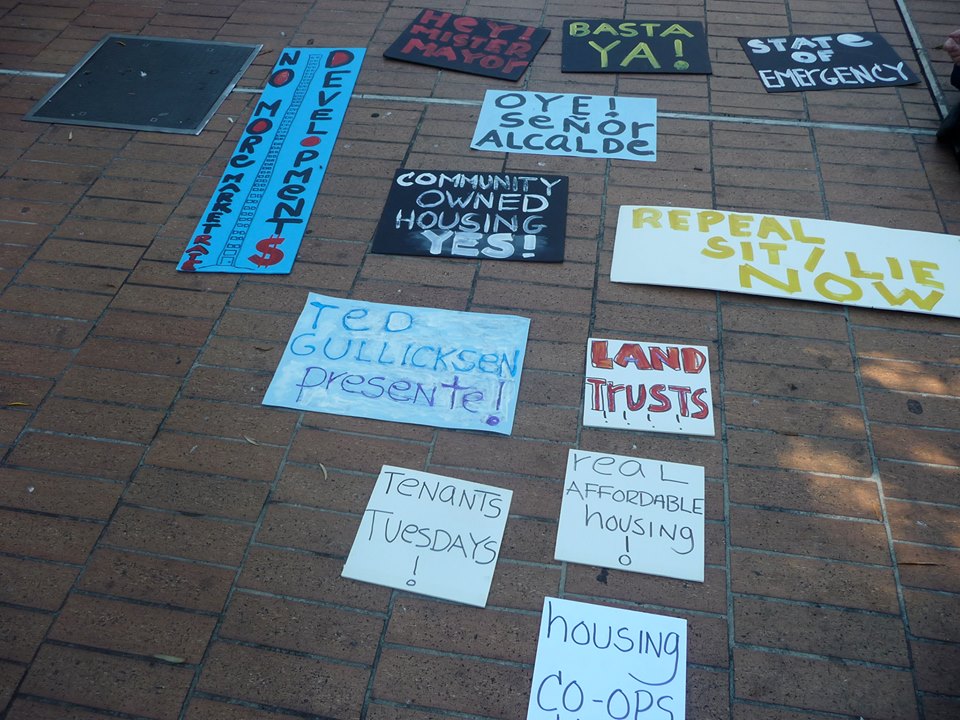 HEY!
MISTER
MAYOR
BASTA
YA!
STATE
OF
EMERGENCY
NO MORE MARKET RATE
DEVELOPMENT$
OYE!
SEÑOR
ALCALDE
COMMUNITY
OWNED
HOUSING
YES!
REPEAL
SIT/LIE
NOW
TED
GULLICKSEN
presente!
LAND
TRUSTS
real
AFFORDABLE
housing
!
TENANTS
TUESDAYS
!
housing
CO-OPS